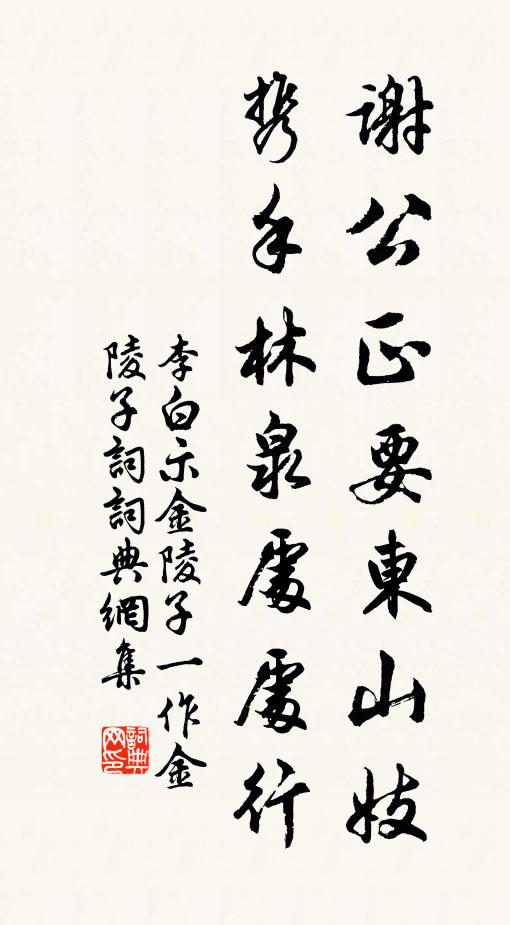 謝公正要東山妓
携手林泉處處行
李白示金陵子一作金
陵子詞詞典網集
詞典网印